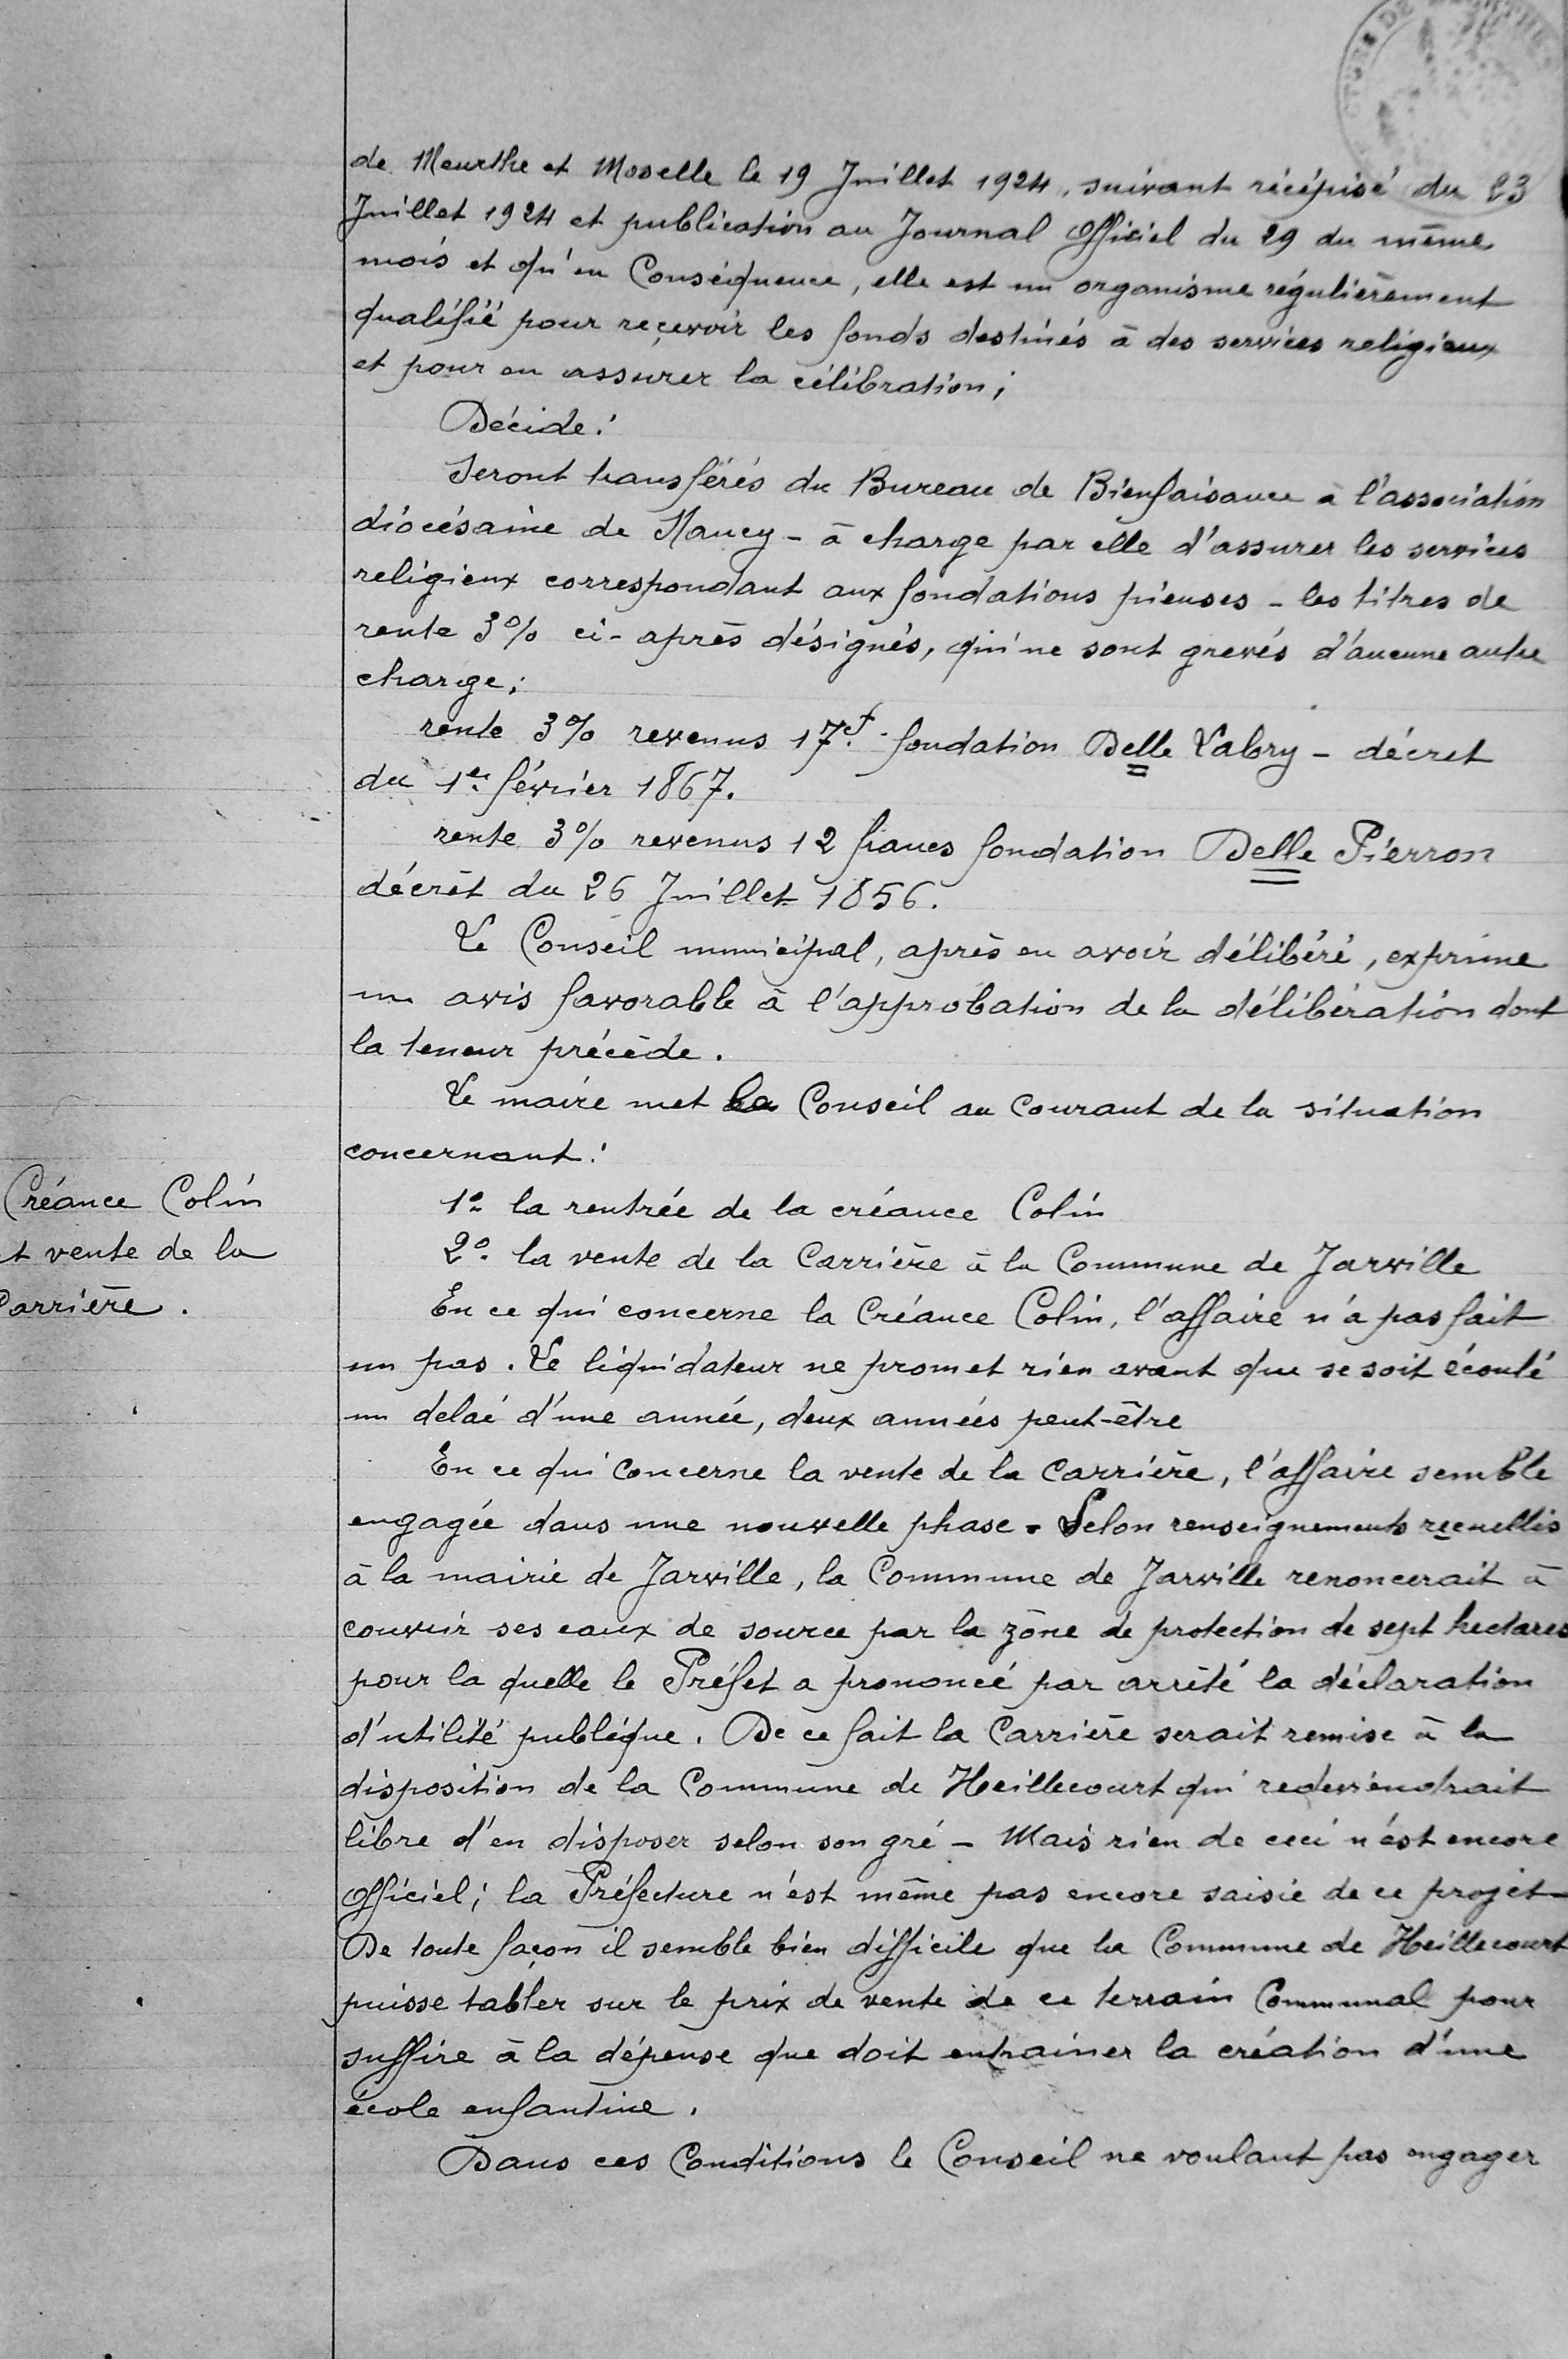 de Meurthe et Moselle le 19 Juillet 1924, suivant récépisé du 23
Juillet 1924 et publication au Journal Officiel du 29 du même
mois et qu'en Conséquence, elle est un organisme régulièrement
qualifié pour reçevoir les fonds destinés à des services religieux
et pour en assurer la célébration;
Décide:
Seront transférés du Bureau de Bienfaisance à l'association
diocésaine de Nancy - à charge par elle d'assurer les services
religieux correspondant aux fondations pieuses - les titres de
rente 3% ci-après désignés, qui ne sont grevés d'aucune autre
charge;
rente 3% revenus 17f. fondation Delle Labry - décret
du 1er février 1867.
rente 3% revenus 12 francs fondation Delle Pierron
décrèt du 26 Juillet 1856.
Le Conseil municipal, après en avoir délibéré, exprime
un avis favorable à l'approbation de la délibération dont
la teneur précède.
Le maire met le Conseil au Courant de la situation
concernant:
Créance Colin
et vente de la
Carrière.
1° la rentrée de la créance Colin
2° la vente de la Carrière à la Commune de Jarville
En ce qui concerne la Créance Colin, l'affaire n'a pas fait
un pas. Le liquidateur ne promet rien avant que se soit écoulé
un delai d'une année, deux années peut-être
En ce qui Concerne la vente de la Carrière, l'affaire semble
engagée dans une nouvelle phase. Selon renseignements recueillis
à la mairie de Jarville, la Commune de Jarville renoncerait à
couvrir ses eaux de source par la zône de protection de sept hectares
pour la quelle le Préfet a prononcé par arrêté la déclaration
d'utilité publique. De ce fait la Carrière serait remise à la
disposition de la Commune de Heillecourt qui redeviendrait
libre d'en disposer selon son gré - Mais rien de ceci n'est encore
Officiel; la Préfecture n'est même pas encore saisie de ce projet -
De toute façon il semble bien difficile que la Commune de Heillecourt
puisse tabler sur le prix de vente de ce terrain Communal pour
suffire à la dépense que doit entrainer la création d'une
école enfantine.
Dans ces Conditions le Conseil ne voulant pas engager